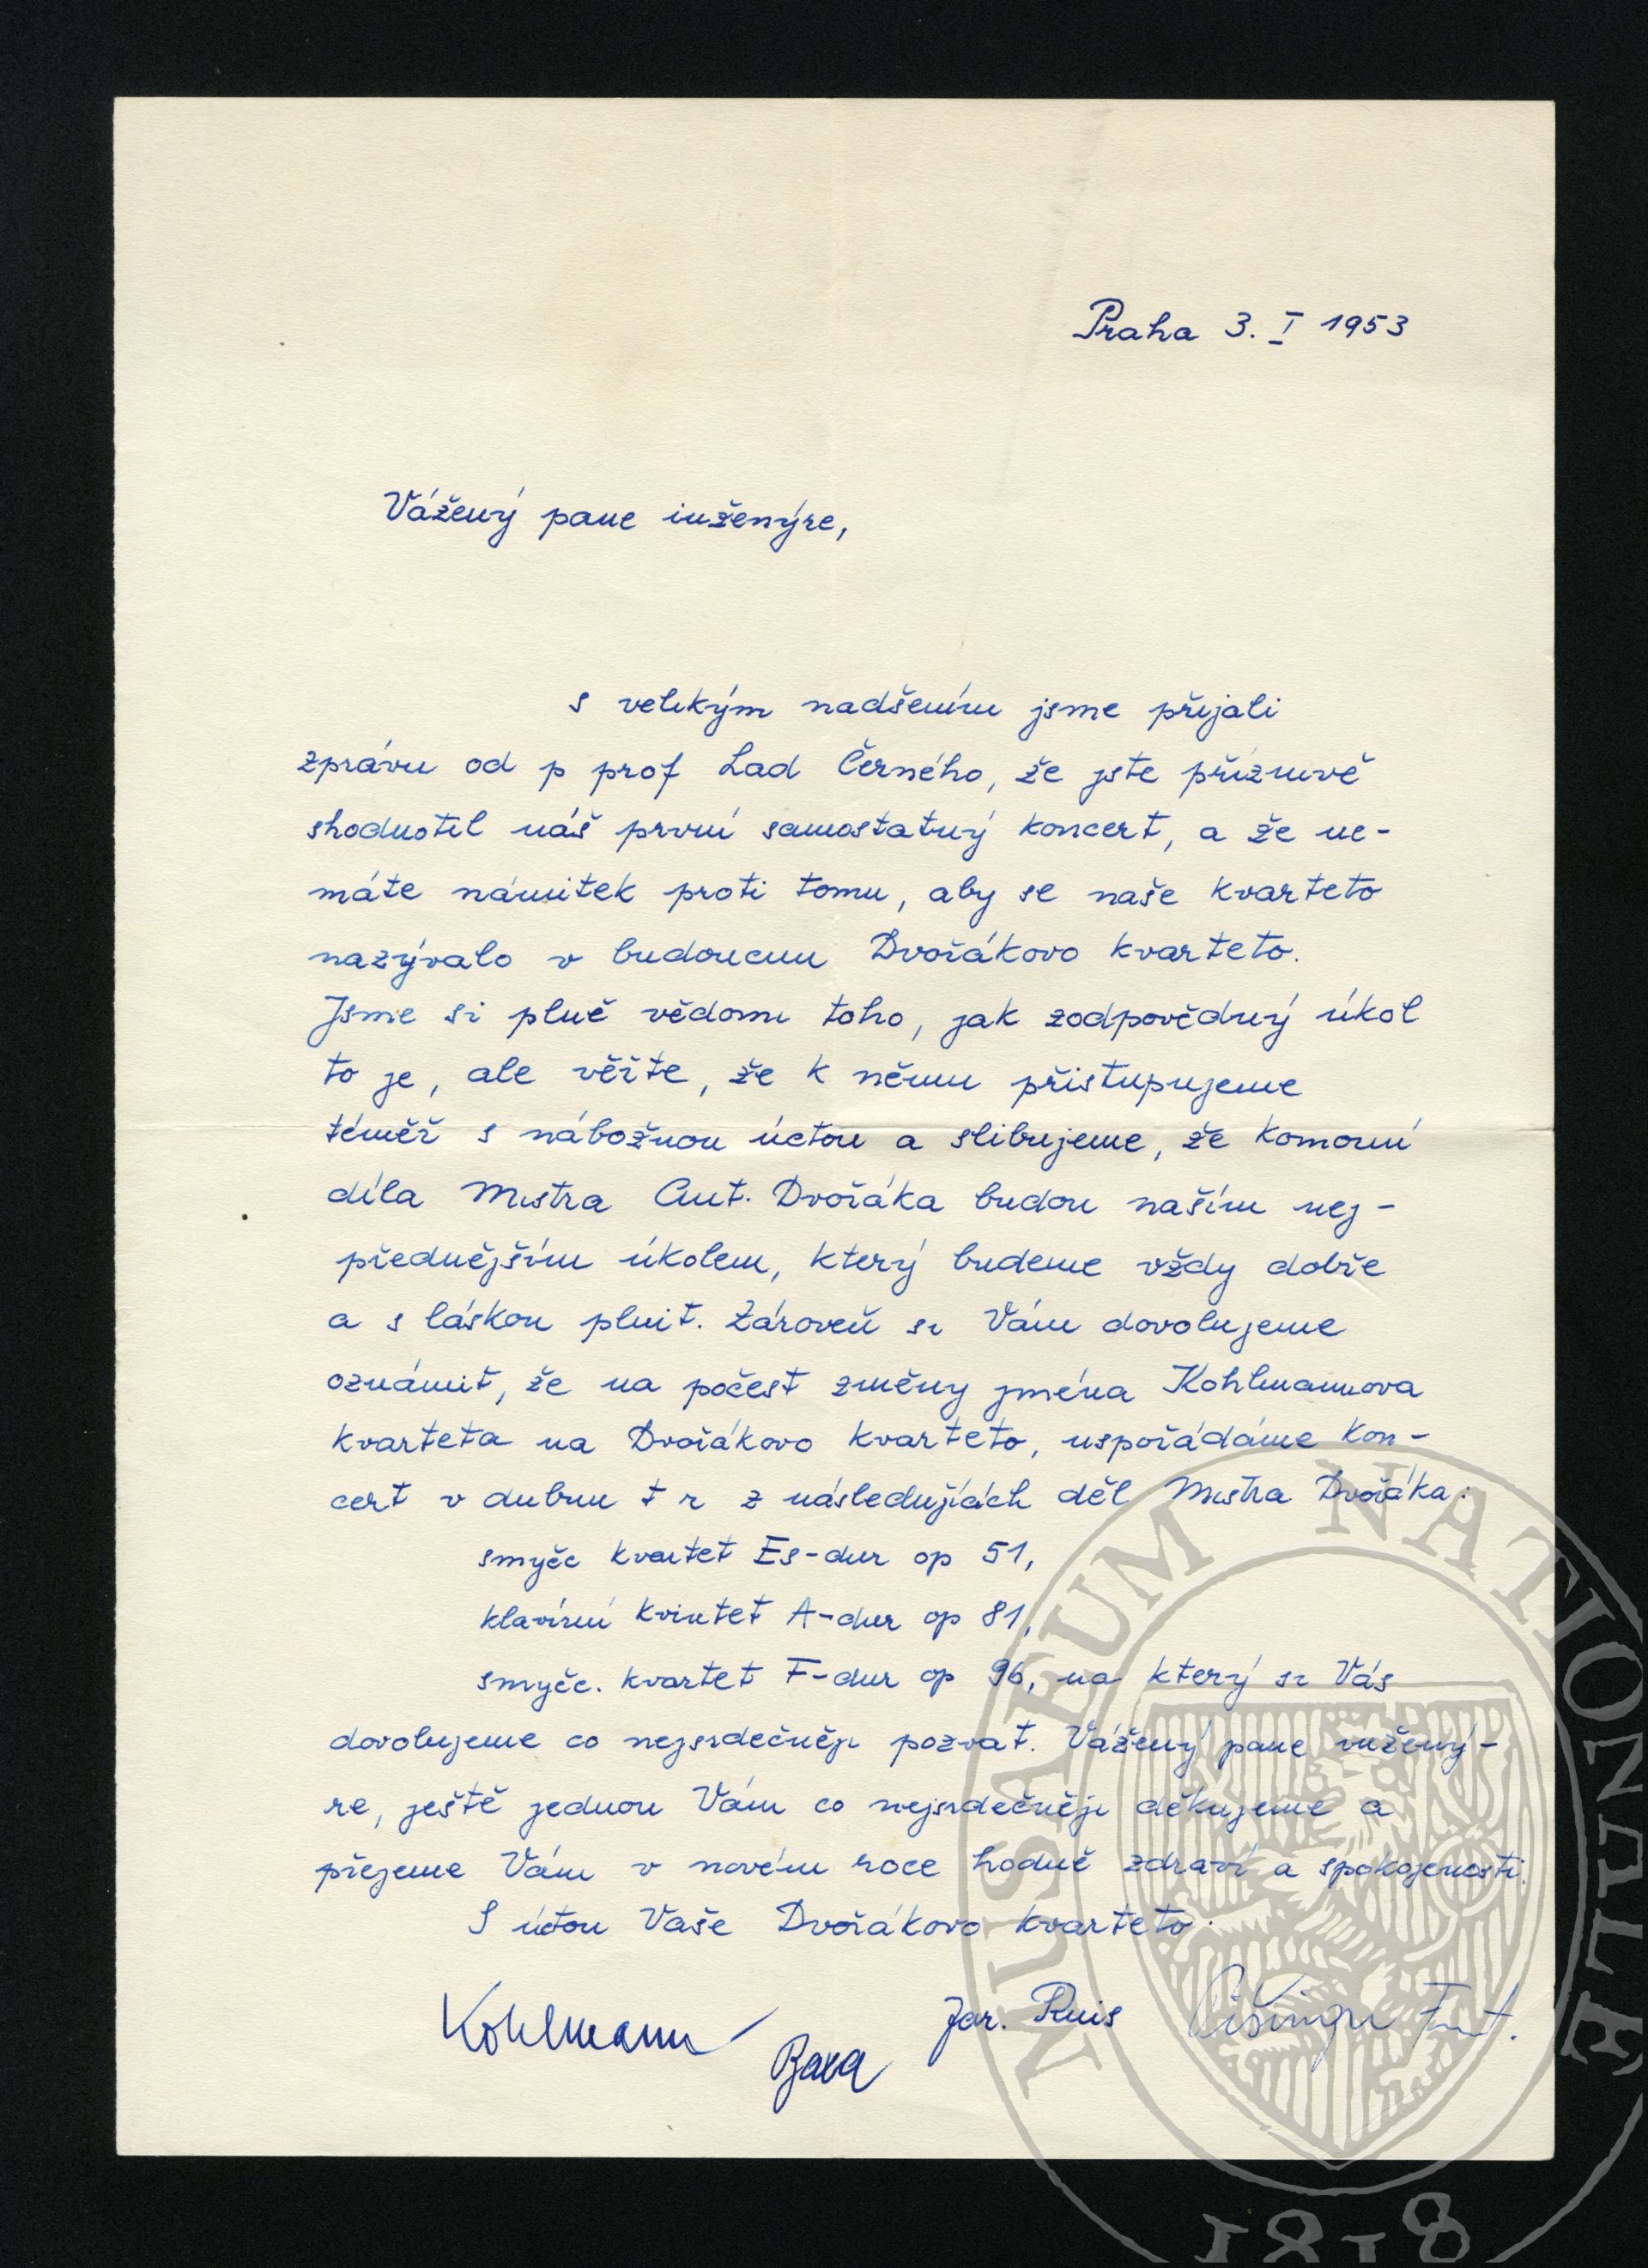 Praha 3. I 1953
Vážený pane inženýre,
s velikým nadšením jsme přijali
zprávu od p prof Lad Černého, že jste příznivě
shodnotil náš první samostatný koncert, a že ne-
máte námitek proti tomu, aby se naše kvarteto
nazývalo v budoucnu Dvořákovo kvarteto.
Jsme si plně vědomi toho, jak zodpovědný úkol
to je, ale věřte, že k němu přistupujeme
téměř s nábožnou úctou a slibujeme, že komorní
díla Mistra Ant. Dvořáka budou naším nej-
přednějším úkolem, který budeme vždy dobře
a s láskou plnit. Zároveň si Vám dovolujeme
oznámit, že na počest změny jména Kohlmannova
kvarteta na Dvořákovo kvarteto, uspořádáme kon-
cert v dubnu t r z následujících děl Mistra Dvořáka:
smyčc kvartet Es-dur op 51,
klavírní kvintet A-dur op 81,
smyčc. kvartet F-dur op 96, na který si Vás
dovolujeme co nejsrdečněji pozvat. Vážený pane inžený-
re, ještě jednou Vám co nejsrdečněji děkujeme a
přejeme Vám v novém roce hodně zdraví a spokojenosti.
S úctou Vaše Dvořákovo kvarteto.
Kohlmann
Jar. Ruis
MUSAEUM NATIONALE
1818